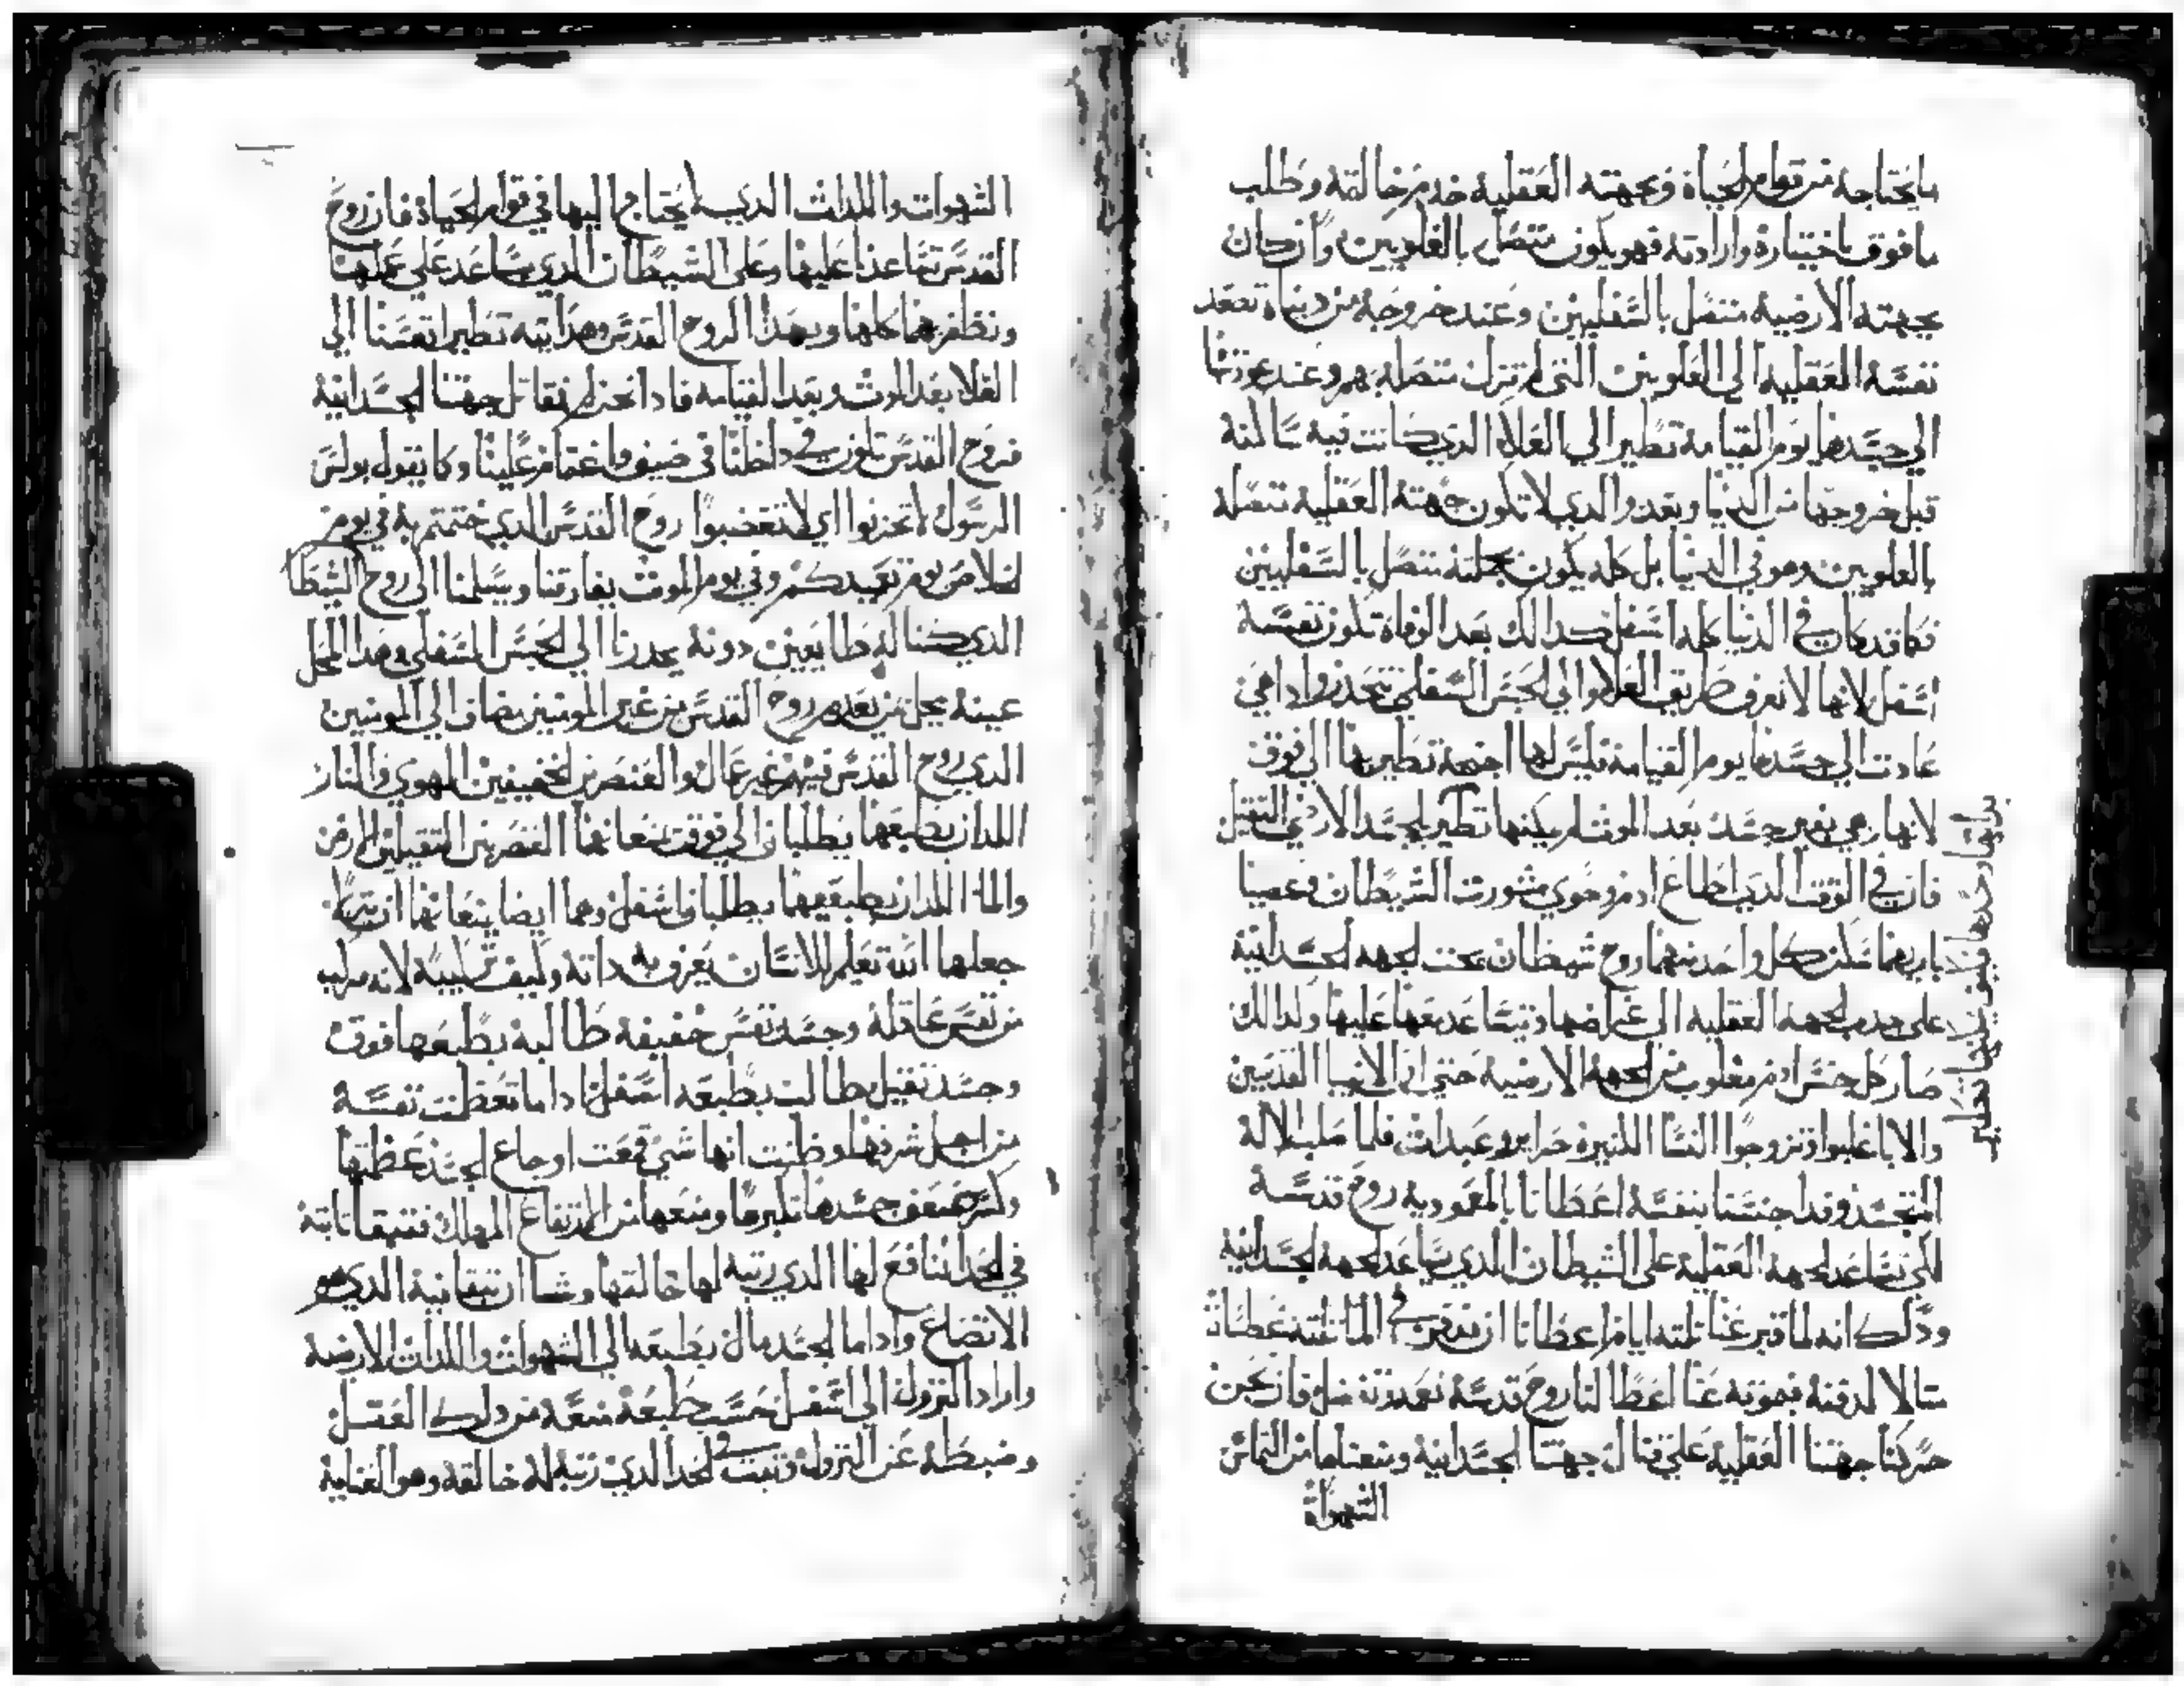 ما يحتاجه من قوام الحياة وبجهته العقلية خدم خالقه وطلب
ما فوق باختياره وارادته فهو يكون متصل بالعلويين وان كان
بجهته الارضية متصل بالسفليين وعند خروجه من دنياه تصعد
نفسه العقلية الي العلويين التي لم تزل متصله بهم وعند عودتها
الي جسدها يوم القيامة تطير الي العلا الذي كانت فيه ساكنة
قبل خروجها من الدنيا وبعد والدي لا تكون جهته العقلية متصله
بالعلويين وهو في الدنيا بل كله يكون بجملته متصل بالسفليين
فكما قد كان في الدنيا كله اسفل كدالك بعد الوفاة تكون نفسه
اسفل لانها لا تعرف طريق العلا والي الحبس السفلي تنحدر وادا هي
عادت الي جسدها يوم القيامة فليس لها اجنحة تطير بها الي فوق
لانها وهي بغير جسد بعد الموت لم يكنها تطير بجسد الارضي الثقيل
فان في الوقت الدي اطاع ادم وحوي مشورت الشيطان وعصيا
باريهما سكن كل واحد منهما روح شيطان تحت الجهه الجسدانية
علي الجهه العقلية الي غرضها وتساعد معها عليها ولدالك
صار كل جنس ادم مغلوب من الجهة الارضية حتي ان الانبيا القديسين
والابا غلبوا وتزوجوا النسا الكثيره حراير وعبدات فلما صلب الالة
المتجسد وفدا جنسنا بنفسه اعطانا بالمعمودية روح قدسه
لكي تساعد الجهة العقلية علي الشيطان الدي يساعد الجهة الجسدانية
ودلك انه لما قبر عنا تلتة ايام اعطانا ان ندفن في الما تلتة غطسات
متالا لدفنه فبموته عنا اعطا لنا روح قدسه فان نحن
حركنا جهتنا العقلية علي قتال جهتنا الجسدانية ومنعناها من التماس
الشهواة
الشهوات واللدات الدي لا يحتاج اليها في قوام الحياة فان روح
القدس تساعدنا عليها وعلي الشيطان الدي يساعد علي
ونظفر بهما كلهما وبهدا الروح القدس وهدايته تطير انفسنا الي
العلا بعد الموت وبعد القيامه فادا نحن لم نقاتل جهتنا الجسدانية
فروح القدس تكون في داخلنا في ضيق واغتمام علينا وكما يقول بولس
الرسول لا تحزنوا اي لا تغضبوا روح القدس الدي ختمتم به في يوم
الخلاص يوم تعميدكم وفي يوم الموت يفارقنا ويسلمنا الي روح الشيطا
الدي كنا له طايعين دونه يحدرنا الي الحبس السفلي وهدا المحل
عينه يحل من بعدم روح القدس من غير المومنين يضاف الي المومنين
الدي روح القدس فيهم غير عمال والعنصرين الخفيفين الهوي والنار
اللدان بطبعها يطلبان الي فوق العنصرين الثقيلين الارض
والما اللدان بطبعها يطلبان اسفل وهما ايضا
جعلها الله تعليم للانسان يعرف به داته وكيف تركيبه لانه مركب
من نفس عاقلة وجسد نفس خفيفه طالبه بطبعها فوق
وجسد ثقيل طالب بطبعه اسفل ادا ما تعظمت نفسه
من اجل شرفها وظنت انها شي قمعت اوجاع الجسد عظمتها
وكسر ضعف جسدها كبرها ومنعها من الارتفاع المهلك فتبقا تابتة
في الحد النافع لها الدي رتبه لها خالقها وشا ان تبقا فيه الدي هو
الاتضاع وادا ما الجسد مال بطبعه الي الشهوات واللدات الارضية
واراد النزول الي اسفل حسب طبعه منعه من دلك العقل
وضبطه عن النزول وتبت في الحد الدي رتبه له خالقه وهو العناية